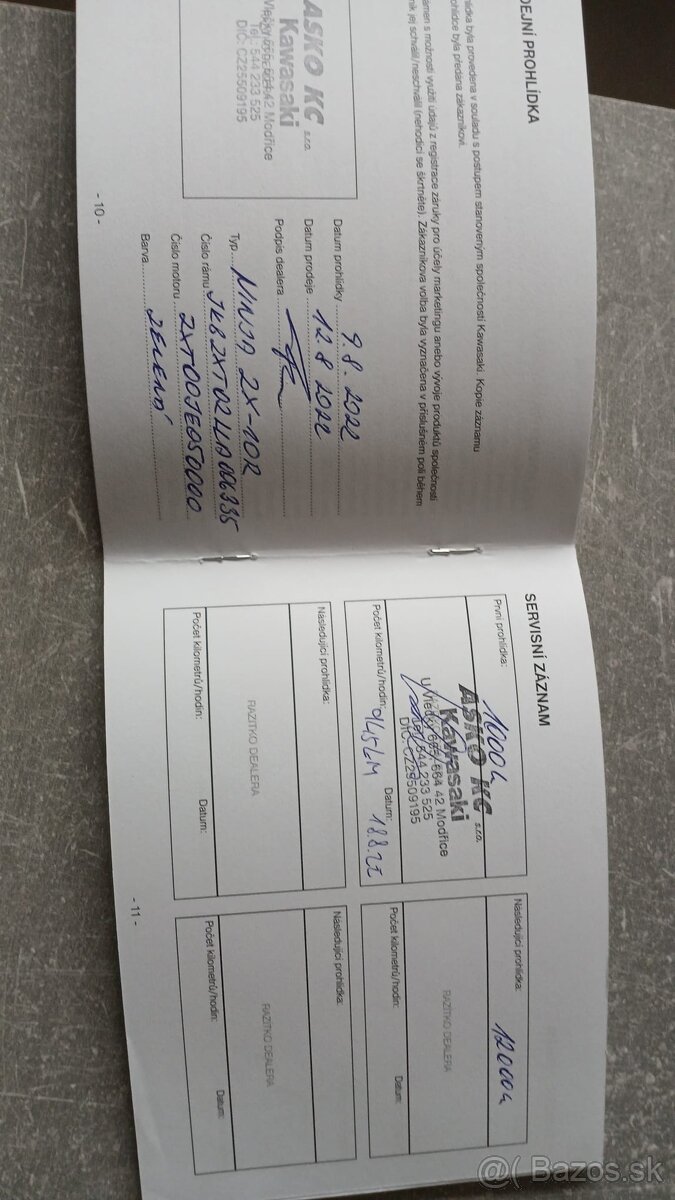 DEJNÍ PROHLÍDKA
hlídka byla provedena v souladu s postupem stanoveným společností Kawasaki. Kopie záznamu
ohlídce byla předána zákazníkovi.
ámen s možností využití údajů z registrace záruky pro účely marketingu anebo vývoje produktů společnosti
ník jej schválil/neschválil (nehodící se škrtněte). Zákazníkova volba byla vyznačena v příslušném poli během
ASKO KC s.r.o.
Kawasaki
42 Modřice
Tel.: 544 233 525
DIČ: CZ25509195
Datum prohlídky 9.8.2022
Datum prodeje 12.8 2022
Podpis dealera
Typ NINJA ZX-10R
Číslo rámu
Číslo motoru ZXT00JE050000
Barva ZELENÁ
- 10 -
SERVISNÍ ZÁZNAM
První prohlídka: 1000
ASKO KC s.r.o.
Kawasaki
664 42 Modřice
Tel.: 544 233 525
DIČ: CZ25509195
Počet kilometrů/hodin:
Datum:
Následující prohlídka: 12000
RAZÍTKO DEALERA
Počet kilometrů/hodin:
Datum:
Následující prohlídka:
RAZÍTKO DEALERA
Počet kilometrů/hodin:
Datum:
Následující prohlídka:
RAZÍTKO DEALERA
Počet kilometrů/hodin:
Datum:
- 11 -
@( Bazos.sk